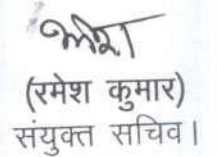 (रमेश कुमार)
संयुक्त सचिव।